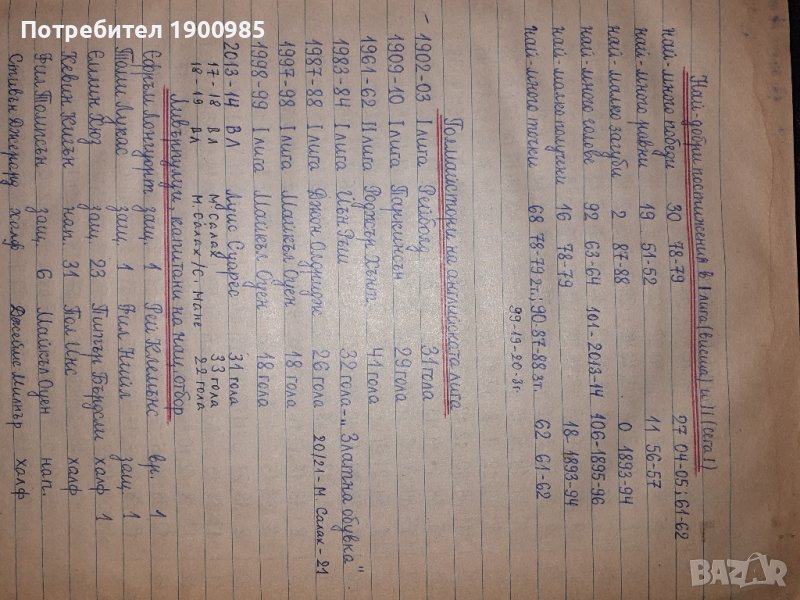 Потребител 1900985
Най-добри постижения в I лига (висша) и II (сега I)
най-много победи 30 78-79 27 04-05; 61-62
най-много равни 19 51-52 11 56-57
най-малко загуби 2 87-88 0 1893-94
най-много голове 92 63-64 101-2013-14 106-1895-96
най-малко получени 16 78-79 18-1893-94
най-много точки 68 78-79 2т.; 90. 87-88 3т. 62 61-62
99-19-20-3т
Голмайстори на английската лига
- 1902-03 I лига Рейболд 31 гола
1909-10 I лига Паркинсън 29 гола
1961-62 II лига Роджър Хънт 41 гола
1983-84 I лига Йън Ръш 32 гола - "Златна обувка"
1987-88 I лига Джон Олдридж 26 гола 20/21-М. Салах-21
1997-98 I лига Майкъл Оуен 18 гола
1998-99 I лига Майкъл Оуен 18 гола
2013-14 ВЛ Луис Суарес 31 гола
17-18 ВЛ М. Салах 33 гола
18-19 ВЛ М. Салах/С. Мане 22 гола
Ливърпулци, капитани на нац. отбор
Ефръм Лонгуърт защ. 1 Рей Клемънс вр. 1
Томи Лукас защ. 1 Фил Нийл защ. 1
Емлин Хюз защ. 23 Питър Бърдсли халф 1
Кевин Кигън нап. 31 Пол Инс халф
Фил Томпсън защ. 6 Майкъл Оуен нап.
Стивън Джерард халф Джеймс Милнър халф
BAZAR